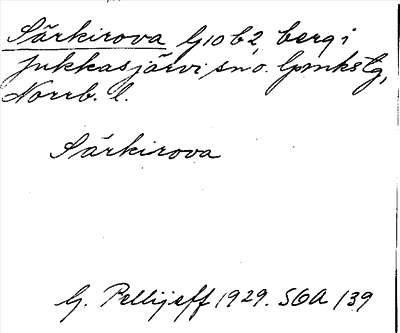 Särkirova G10b2, berg i
Jukkasjärvi sn o. lpmkstg,
Norrb. l.
Särkirova
G. Pellijeff 1929. SOA /39